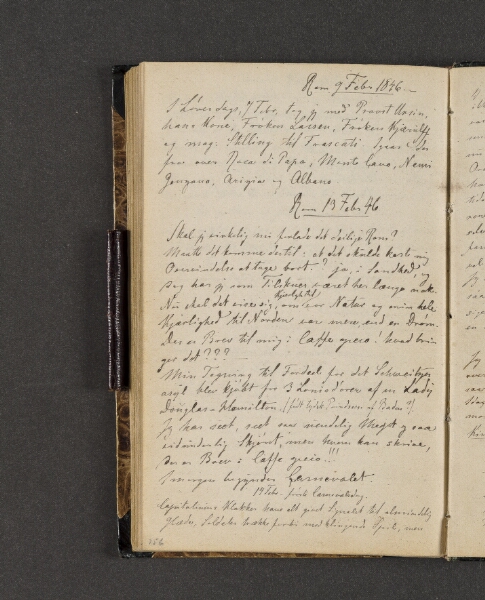 Rom 9 Febr 1846.
I Løverdags, 7 Febr, tog jeg med Provst
hans Kone, Frøken Larsen, Frøken Kjærulff
og mag: Stilling til Frascati. Igaar
over Rocca di Papa, Monte Cavo, Nemi
Genzano, Ariccia og Albano.
Rom 13 Febr 46
Skal jeg virkelig nu forlade det deilige Rom?
Maatte det komme dertil: at det skulde koste mig
Overvindelse at tage bort? ja, i Sandhed
jeg har som været her længe nok.
Nu skal det vise sig, om Natur og min hele
Kjærlighed
Kjærlighed til Norden var mere end en Drøm.
Der er Brev til mig i Caffe greco! hvad brin-
ger det???
Min Tegning til Fordeel for det Schweitzer
asyl blev kjøbt for 3 Louisd'orer af en Lady
Douglas-Hamilton. (født tydsk Prindsesse af Baden?)
Jeg har seet, seet saa uendelig Meget og saa
skjønt, men hvem kan skrive,
der er Brev i Caffe greco!!!
Imorgen begynder Carnevalet.
14 Febr. første Carnevalsdag.
Capitoliums Klokker have alt givet Signalet til almindelig
Glæde, Soldater trække forbi med klingende Spil, men
186